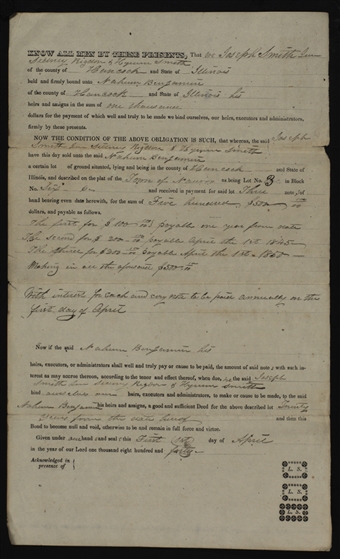 KNOW ALL MEN BY THESE PRESENTS, That we Joseph Smith Junr
Sidney Rigdon & Hyrum Smith
of the county of Hancock and State of Illinois
held and firmly bound unto Nahum Benjamin
of the county of Hancock and State of Illinois his
heirs and assigns in the sum of one thousand
dollars for the payment of which well and truly to be made we bind ourselves, our heirs, executors and administrators,
firmly by these presents.
NOW THE CONDITION OF THE ABOVE OBLIGATION IS SUCH, that whereas, the said Joseph
Smith Junr Sidney Rigdon & Hyrum Smith
have this day sold unto the said Nahum Benjamin
a certain lot of ground situated, lying and being in the county of Hancock and State of
Illinois, and described on the plat of the Town of Nauvoo as being Lot No. 3 in Block
No. Six 6 and received in payment for said lot Three notes of
hand bearing even date herewith, for the sum of Five hundred $500
dollars, and payable as follows.
The first for $100 payable one year from date
The second for $200 payable April the 1st 1845
The third for $200 payable April the 1st
Making in all the aforesaid $500
With interest for each and every note to be paid annually on the
first day of April
Now if the said Nahum Benjamin his
heirs, executors, or administrators shall well and truly pay or cause to be paid, the amount of said notes with each in-
terest as may accrue thereon, according to the tenor and effect thereof, when due, the said Joseph
Smith Junr Sidney Rigdon & Hyrum Smith
bind ourselves our heirs, executors and administrators, to make or cause to be made, to the said
Nahum Benjamin his heirs and assigns, a good and sufficient Deed for the above described lot Twenty
years from the date hereof and then this
Bond to become null and void, otherwise to be and remain in full force and virtue.
Given under our hands and seals First 1st day of April
in the year of our Lord one thousand eight hundred and forty
Acknowledged in
presence of
L. S.
L. S.
L. S.